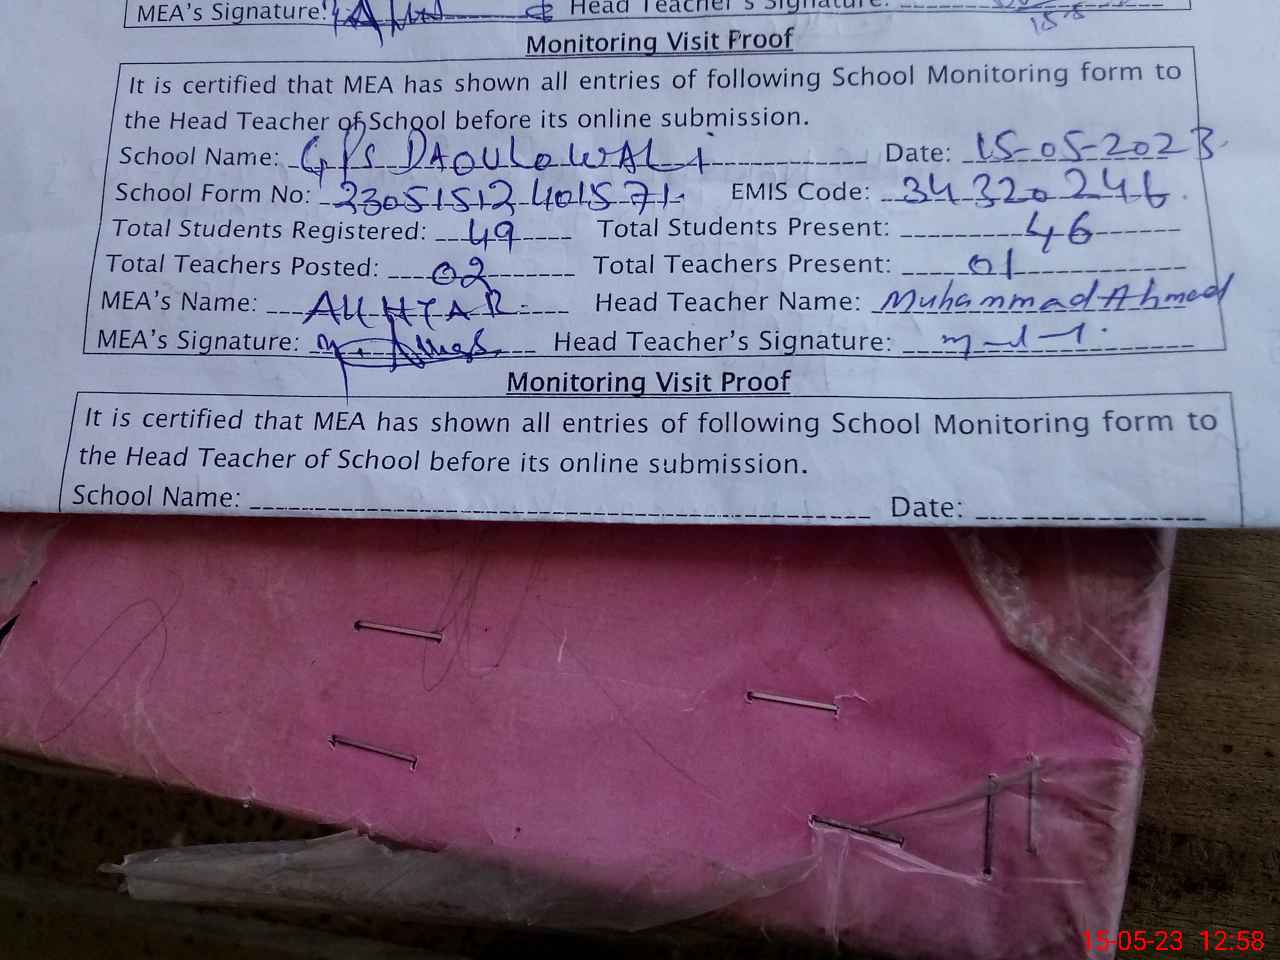 MEA's Signature: Head Teacher's Signature:
Monitoring Visit Proof
It is certified that MEA has shown all entries of following School Monitoring form to
the Head Teacher of School before its online submission.
School Name: GPS DAOULOWALI Date: 15-05-2023
School Form No: 23051512401571 EMIS Code: 34320246
Total Students Registered: 49 Total Students Present: 46
Total Teachers Posted: 02 Total Teachers Present: 01
MEA's Name: Head Teacher Name: Muhammad Ahmad
MEA's Signature: Head Teacher's Signature:
Monitoring Visit Proof
It is certified that MEA has shown all entries of following School Monitoring form to
the Head Teacher of School before its online submission.
School Name: Date:
15-05-23 12:58